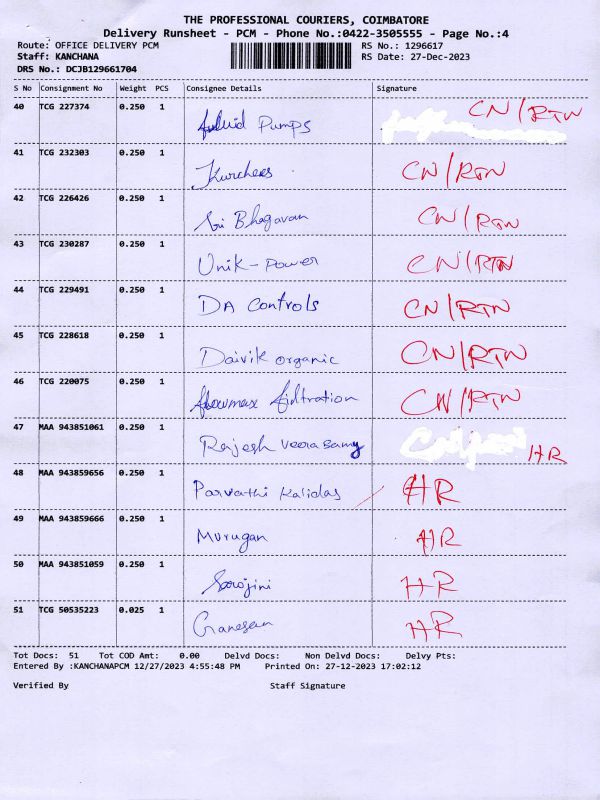 THE PROFESSIONAL COURIERS, COIMBATORE
Delivery Runsheet - PCM - Phone No.:0422-3505555 - Page No.:4
Route: OFFICE DELIVERY PCM RS No.: 1296617
Staff: KANCHANA RS Date: 27-Dec-2023
DRS No.: DCJB129661704
S No Consignment No Weight PCS Consignee Details Signature
40 TCG 227374 0.250 1 Pumps CN/RTN
41 TCG 232303 0.250 1 CN/RTN
42 TCG 226426 0.250 1 Sri Bhagavan CN/RTN
43 TCG 230287 0.250 1 Unik-Power CN/RTN
44 TCG 229491 0.250 1 DA Controls CN/RTN
45 TCG 228618 0.250 1 Daivik organic CN/RTN
46 TCG 220075 0.250 1 flowmax fidltration CN/RTN
47 MAA 943851061 0.250 1 Rajesh Veera Samy HR
48 MAA 943859656 0.250 1 Parvathi Kalidas HR
49 MAA 943859666 0.250 1 Murugan HR
50 MAA 943851059 0.250 1 Sarojini HR
51 TCG 50535223 0.025 1 Ganesan HR
Tot Docs: 51 Tot COD Amt: 0.00 Delvd Docs: Non Delvd Docs: Delvy Pts:
Entered By :KANCHANAPCM 12/27/2023 4:55:48 PM Printed On: 27-12-2023 17:02:12
Verified By Staff Signature